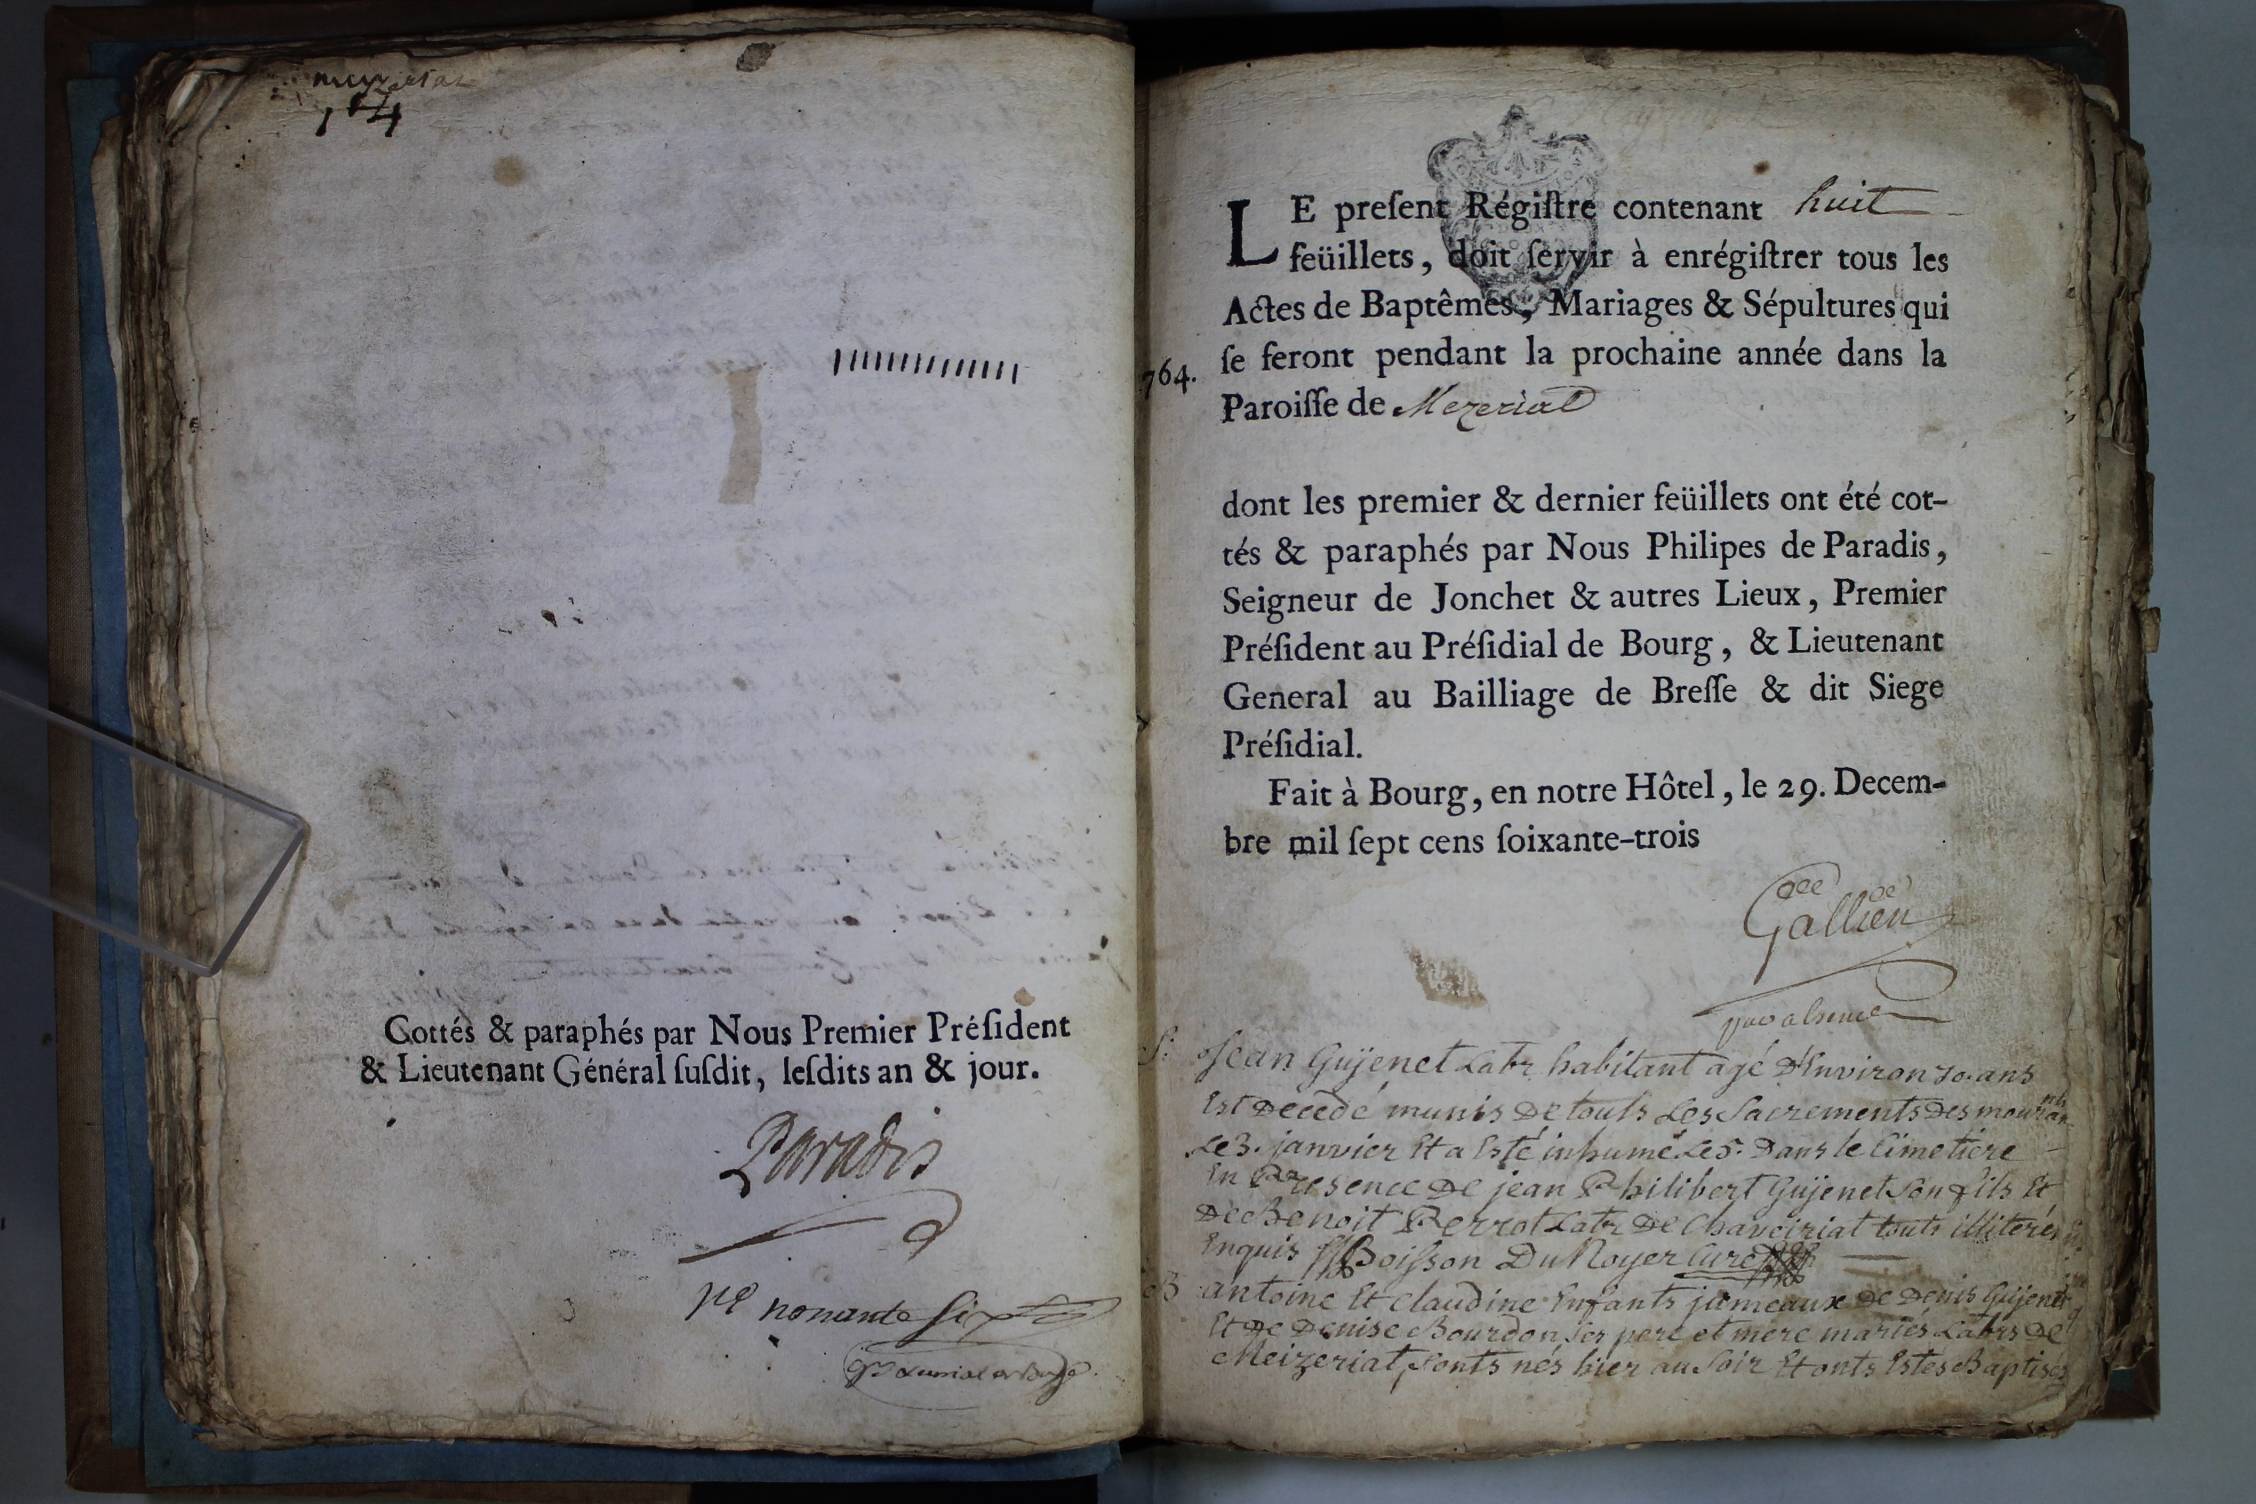 Cottés & paraphés par Nous Premier Préſident
& Lieutenant Général ſuſdit, leſdits an & jour.
Paradis
nonante six
764.
LE preſent Régiſtre contenant huit
feüillets, doit ſervir à enrégiſtrer tous les
Actes de Baptêmes, Mariages & Sépultures qui
ſe feront pendant la prochaine année dans la
Paroiſſe de Mezeriat
dont les premier & dernier feüillets ont été cot-
tés & paraphés par Nous Philipes de Paradis,
Seigneur de Jonchet & autres Lieux, Premier
Préſident au Préſidial de Bourg, & Lieutenant
General au Bailliage de Breſſe & dit Siege
Préſidial.
Fait à Bourg, en notre Hôtel, le 29. Decem-
bre mil ſept cens ſoixante-trois
Gallien
S. Jean Guÿenet Labr habitant agé d'Environ 70. ans
Est Decedé munis De touts Les Sacrements Des mourants
Le 3. janvier Et a Esté inhumé Le 5. Dans le Cimetiere
En Presence De jean Philibert Guÿenet son fils Et
De Benoit Perrot Labr De Chaveiriat touts illiterés
Enquis Boisson Du Noyer Curé
B antoine Et Claudine Enfants jumeaux De Denis Guÿenet
Et De Denise Bourdon ses pere et mere mariés Labrs De
Meizeriat, sonts nés hier au soir Et onts Estés Baptisés